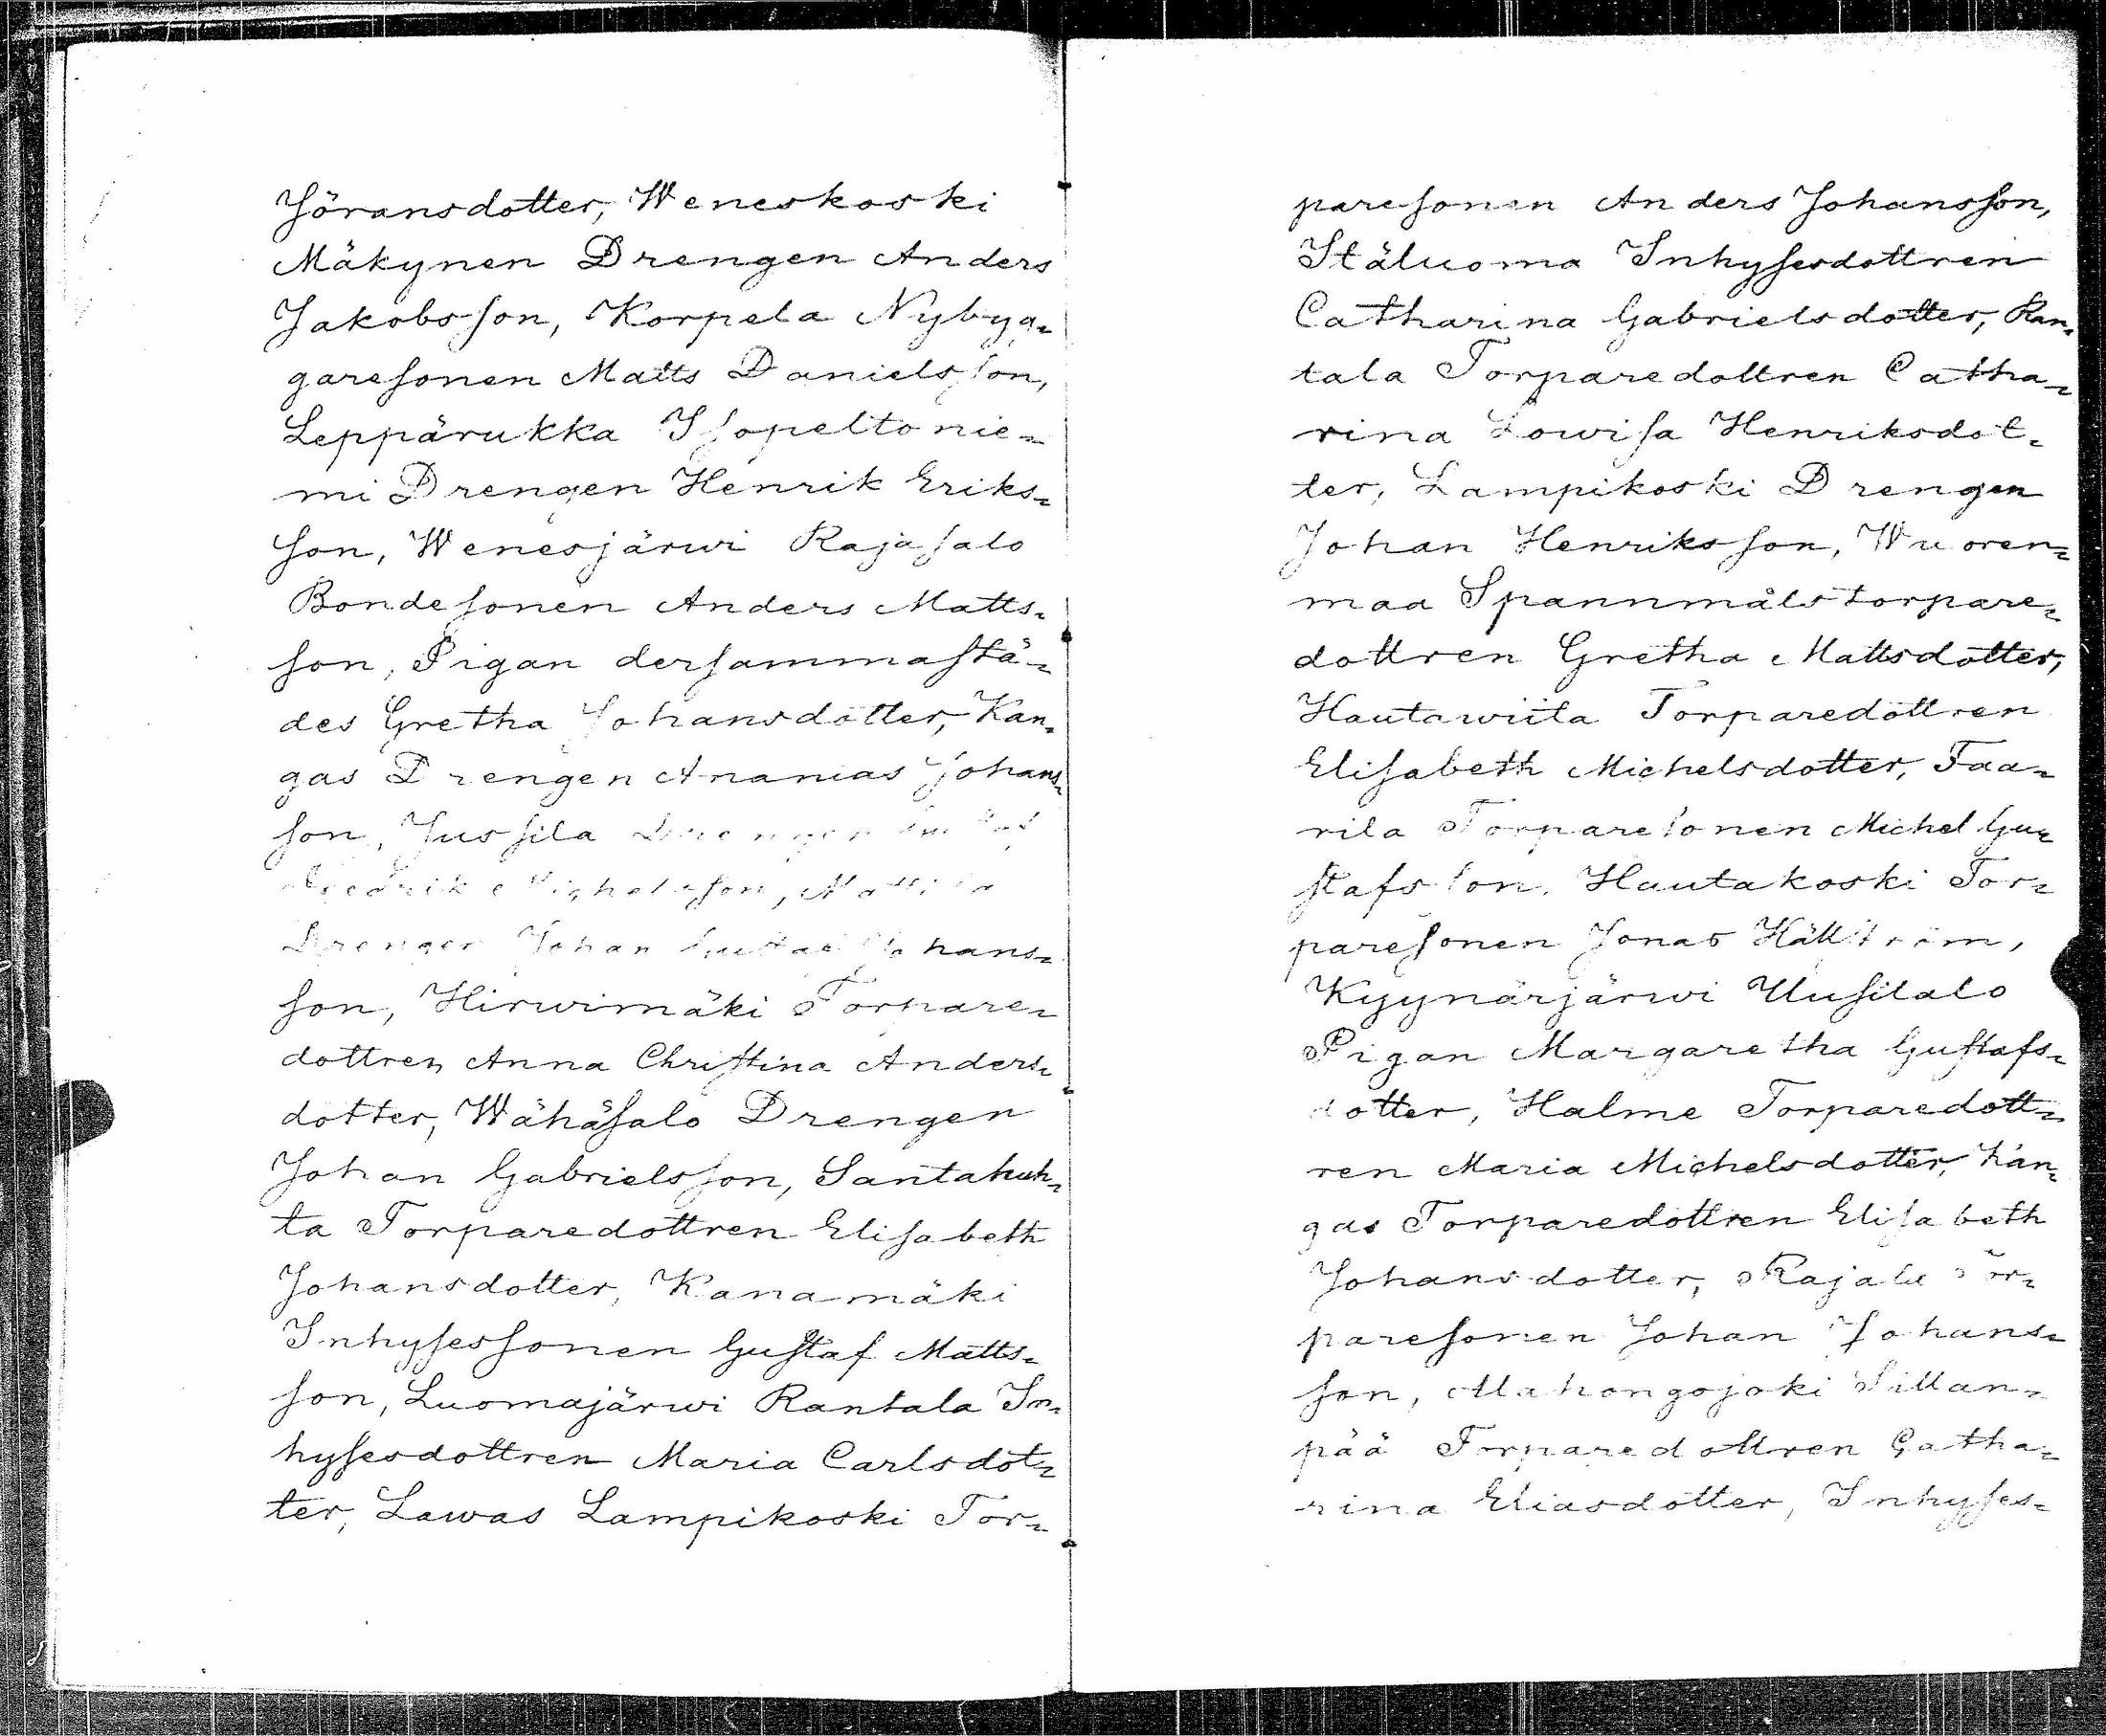 Jöransdotter, Weneskoski
Mäkynen Drengen Anders
Jakobsson, Korpela Nybyg=
garesonen Matts Danielsson,
Leppärukka Isopeltonie=
mi Drengen Henrik Eriks=
son, Wenesjärwi Rajasalo
Bondesonen Anders Matts=
son, Pigan dersammastä=
des Gretha Johansdotter, Kan=
gas Drengen Ananias Johans=
son, Jussila Drengen
Fredrik Michelsson, Mattila
Drengen Johan Gustaf Johans=
son, Hirwimäki Torpare=
dottren Anna Christina Anders=
dotter, Wähäsalo Drengen
Johan Gabrielsson, Santahuh=
ta Torparedottren Elisabeth
Johansdotter, Kanamäki
Inhysessonen Gustaf Matts=
son, Luomajärwi Rantala In=
hysesdottren Maria Carlsdot=
ter, Lawas Lampikoski Tor=
paresonen Anders Johansson,
Itäluoma Inhysesdottren
Catharina Gabrielsdotter, Ran=
tala Torparedottren Catha=
rina Lowisa Henriksdot=
ter, Lampikoski Drengen
Johan Henriksson, Wuoren=
maa Spannmålstorpare=
dottren Gretha Mattsdotter,
Hautawiita Torparedottren
Elisabeth Michelsdotter, Taa=
rila Torparesonen Michel Gu=
stafsson, Hautakoski Tor=
paresonen Jonas Hällström,
Kyynärjärwi Uusitalo
Pigan Margaretha Gustafs=
dotter, Halme Torparedott=
ren Maria Michelsdotter, Kan=
gas Torparedottren Elisabeth
Johansdotter, Rajala Tor=
paresonen Johan Johans=
son, Mahongojoki Sillan=
pää Torparedottren Catha=
rina Eliasdotter, Inhyses=